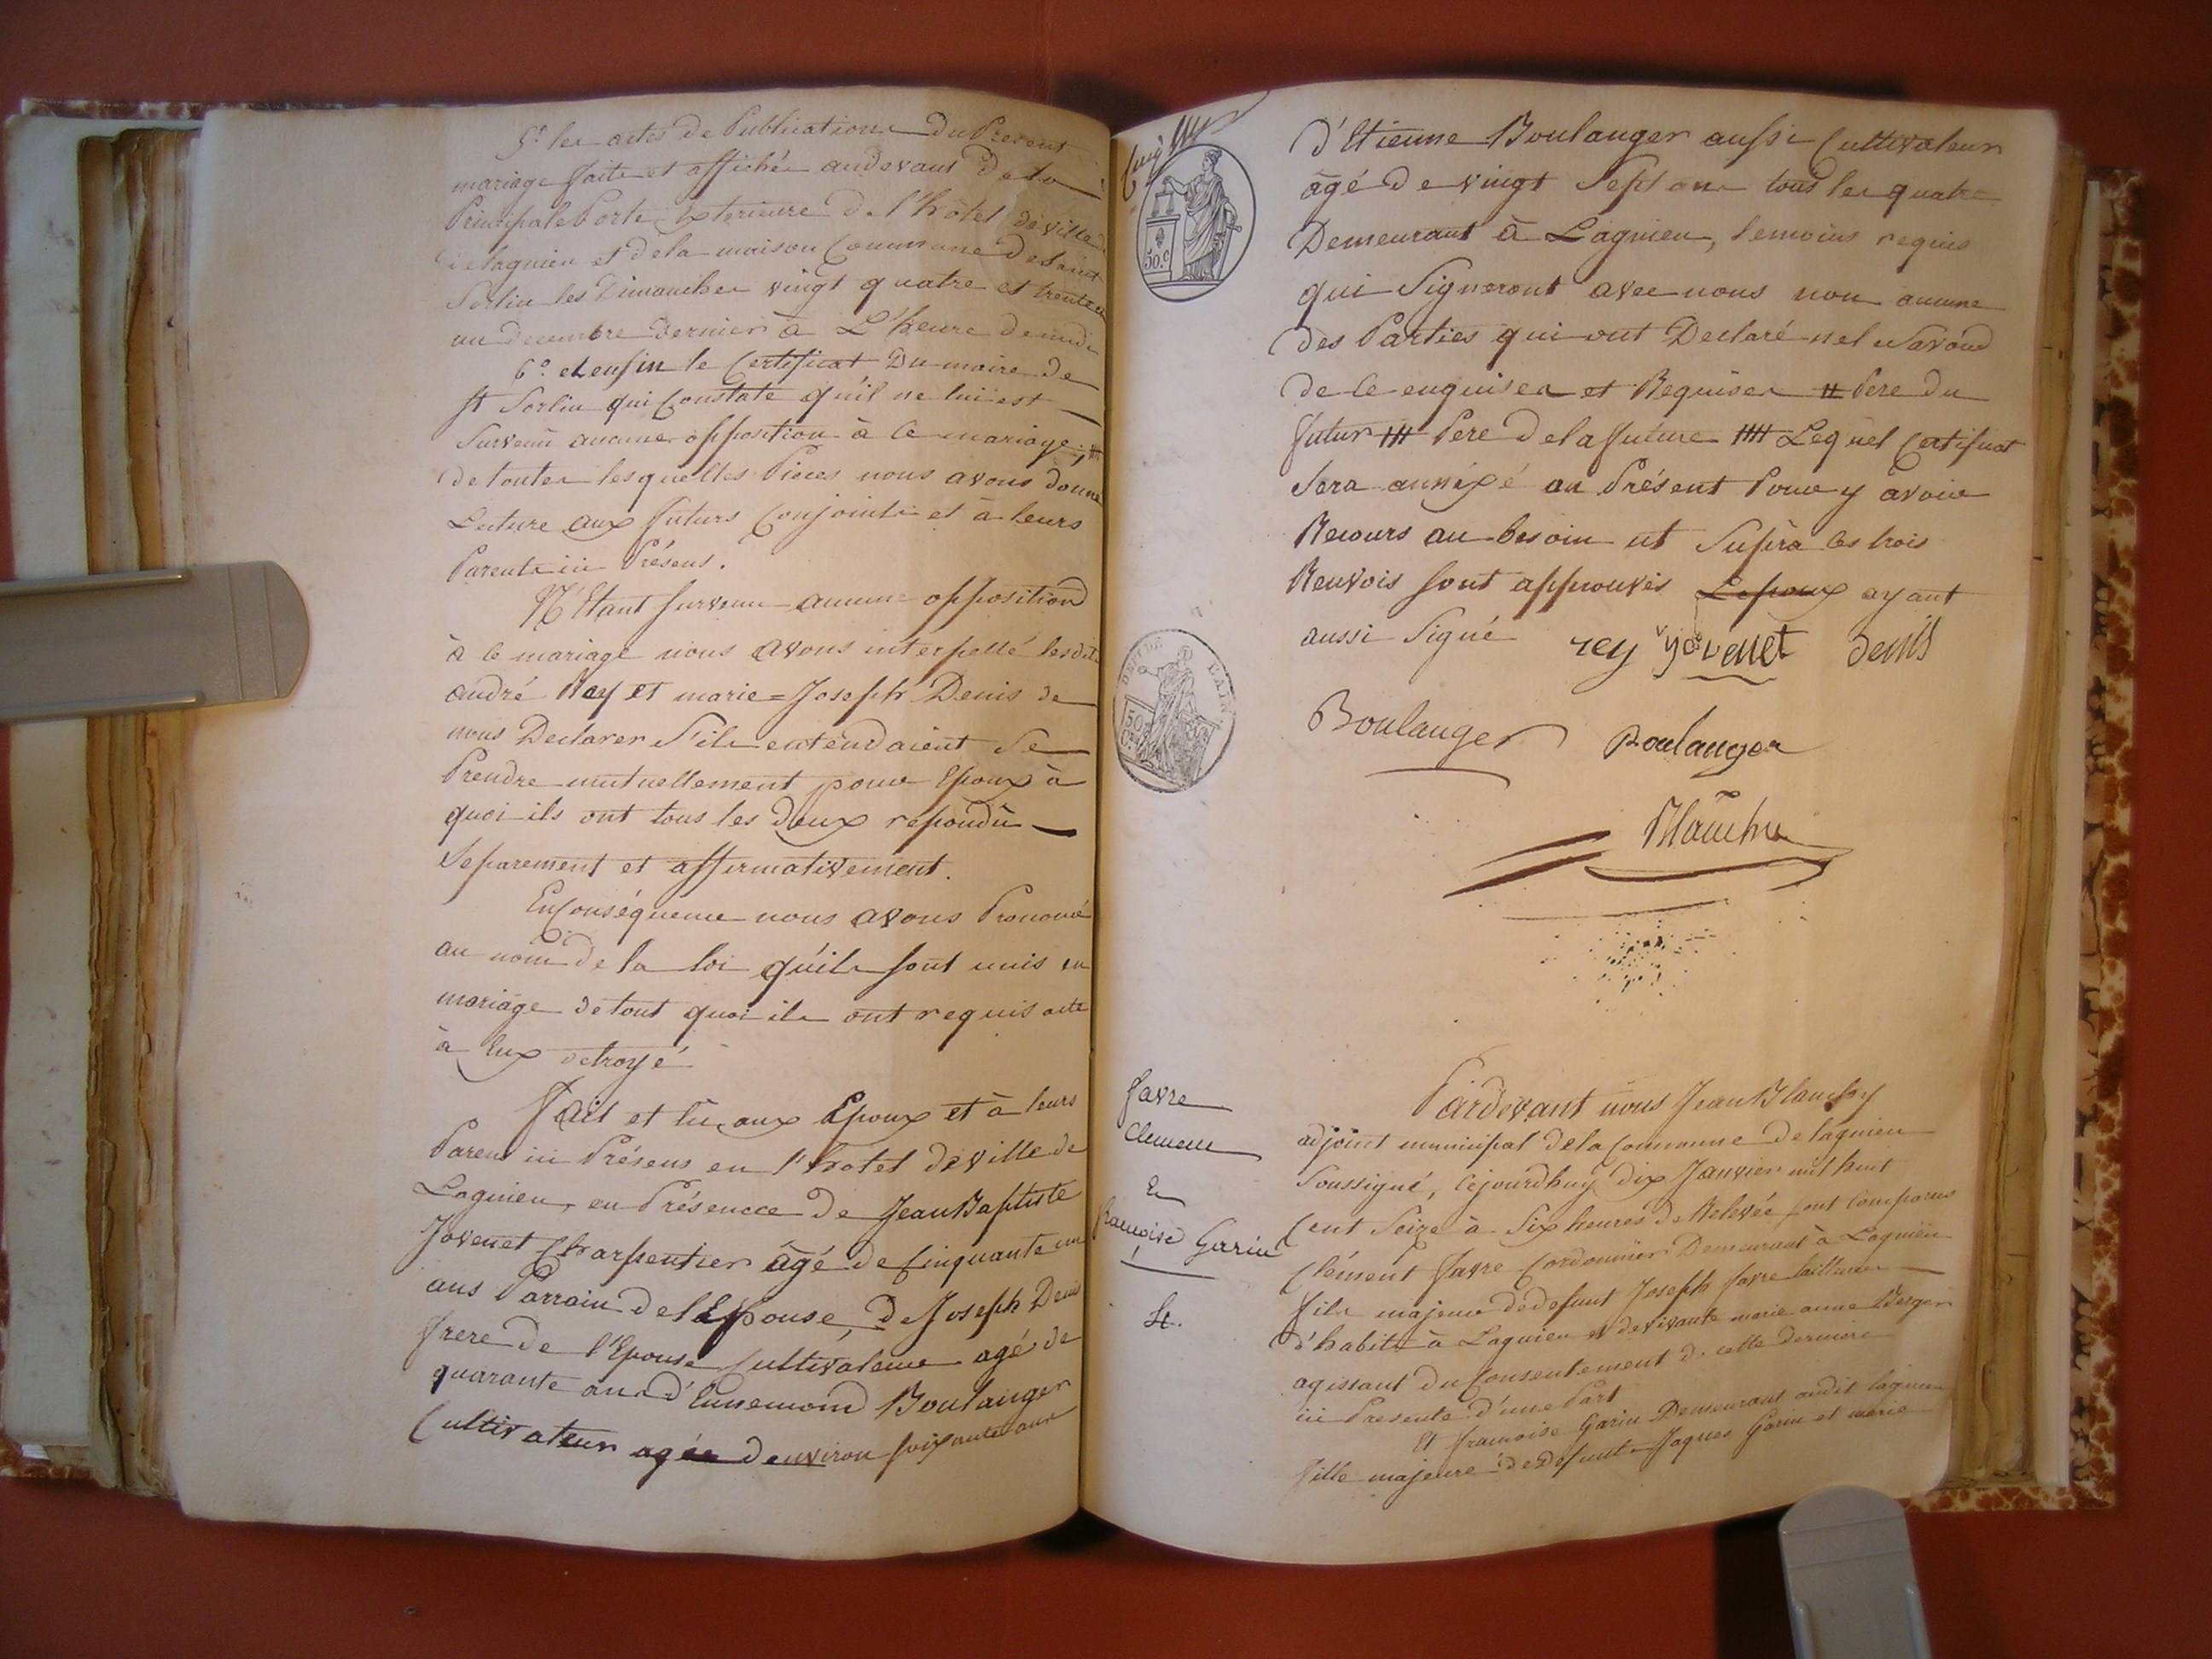 5º les actes de Publications du Present
mariage faite et affichée audevant de la
Principale Porte Exterieure de l'hôtel de ville
de lagnieu et dela maison Commune de Saint
Sorlin les Dimanches vingt quatre et trente
un decembre dernier à L'heure de midi
6º. et enfin le Certificat Du maire de
st Sorlin qui Constate qu'il ne lui est
Survenû aucune opposition à Ce mariage;
de toutes lesquelles Pieces nous avons donné
Lecture aux futurs Conjoints et à leurs
Parents ici Présens.
N'Etant survenu aucune opposition
à Ce mariage nous avons interpellé lesdits
andré Rey et marie=Joseph Denis de
nous Declarer S'ils entendaient Se
Prendre mutuellement pour Epoux à
quoi ils ont tous les Deux repondû
Separement et affirmativement.
En Conséquence nous avons Prononcé
au nom de la loi qu'ils sont unis en
mariage de tout quoi ils ont requis acte
à Eux octroyé
Fait et lû aux Epoux et à leurs
Parens ici Présens en l'hotel de ville de
Lagnieu, en Présence de Jean Baptiste
Jovenet Charpentier âgé de Cinquante un
ans Parrain de l'Epouse, de Joseph Denis
frere de l'Epouse Cultivateur agé de
quarante ans d'Ennemond Boulanger
Cultivateur agée denviron soixante ans
d'Etienne Boulanger aussi Cultivateur
âgé de vingt Sept ans tous les quatre
Demeurant à Lagnieu, temoins requis
qui Signeront avec nous non aucune
des Parties qui ont Declaré nel Savoir
de Ce enquises et Requises # Pere du
futur ## Pere de la future ### Lequel Certificat
Sera annéxé au Présent Pour y avoir
Recours au besoin ut Suprà les trois
Renvois sont approuvés Lepoux ayant
aussi Signé rey jovenet denis
Boulanger Boulanger
Blanchy
50.c
DEP.T DE L'AIN
favre
Clement
Et
francoise Garin
4.
Pardevant nous Jean Blanchy
adjoint municipal de la Commune de lagnieu
Soussigné, Cejourdhuy dix Janvier mil huit
Cent Seize à Six heures de Relevée sont Comparus
Clément favre Cordonnier Demeurant à Lagnieu
fils majeur de defunt Joseph favre tailleur
d'habits à Lagnieu et de vivante marie anne Berger
agissant du Consentement de cette derniere
ici Presente d'une Part
Et francoise Garin Demeurant audit lagnieu
fille majeure de Defunt Jaques Garin et marie